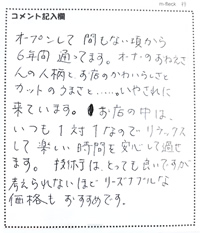 m-flock 様
コメント記入欄
オープンして間もない頃から
6年間通ってます。オーナーのおねえさ
んの人柄とお店のかわいらしさと
カットのうまさと……いやされに
来ています。お店の中は、
いつも1対1なのでリラックス
して楽しい時間を安心して過せ
ます。技術は、とっても良いですが
考えられないほどリーズナブルな
価格もおすすめです。